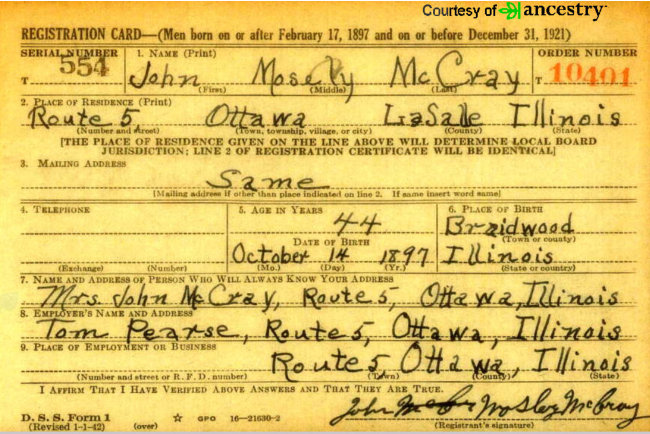 Courtesy of ancestry
REGISTRATION CARD—(Men born on or after February 17, 1897 and on or before December 31, 1921)
SERIAL NUMBER 1. NAME (Print) ORDER NUMBER
T 554 John Mosely McCray T 10401
(First) (Middle) (Last)
2. PLACE OF RESIDENCE (Print)
Route 5 Ottawa LaSalle Illinois
(Number and street) (Town, township, village, or city) (County) (State)
[THE PLACE OF RESIDENCE GIVEN ON THE LINE ABOVE WILL DETERMINE LOCAL BOARD
JURISDICTION; LINE 2 OF REGISTRATION CERTIFICATE WILL BE IDENTICAL]
3. MAILING ADDRESS
Same
[Mailing address if other than place indicated on line 2. If same insert word same]
4. TELEPHONE 5. AGE IN YEARS 6. PLACE OF BIRTH
44 Braidwood
DATE OF BIRTH (Town or county)
October 14 1897 Illinois
(Exchange) (Number) (Mo.) (Day) (Yr.) (State or country)
7. NAME AND ADDRESS OF PERSON WHO WILL ALWAYS KNOW YOUR ADDRESS
Mrs. John McCray, Route 5, Ottawa, Illinois
8. EMPLOYER'S NAME AND ADDRESS
Tom Pearse, Route 5, Ottawa, Illinois
9. PLACE OF EMPLOYMENT OR BUSINESS
Route 5 Ottawa, Illinois
(Number and street or R. F. D. number) (Town) (County) (State)
I AFFIRM THAT I HAVE VERIFIED ABOVE ANSWERS AND THAT THEY ARE TRUE.
D. S. S. Form 1 GPO 16—21630-2 John Mosley McCray
(Revised 1-1-42) (over) (Registrant's signature)